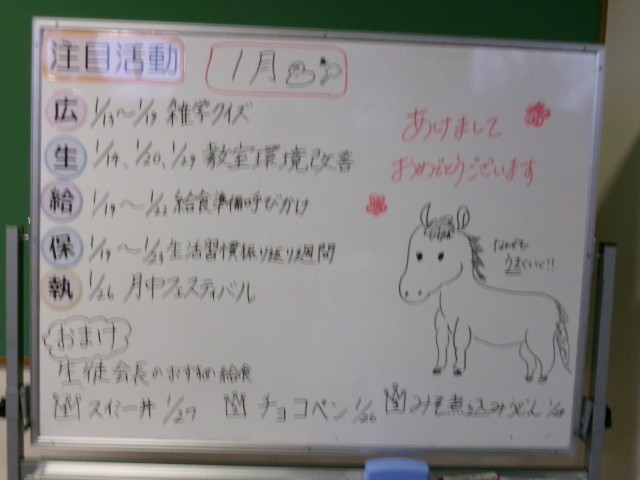 注目活動
1月
広 1/13～1/19 雑学クイズ
生 1/19、1/20、1/29 教室環境改善
給 1/19～1/22 給食準備呼びかけ
保 1/19～1/23 生活習慣振り返り週間
執 1/26 月中フェスティバル
あけまして
おめでとうございます
なんでも
うまくいく!!
おまけ
生徒会長のおすすめ給食
スミー丼 1/27
チョコペン 1/20
みそ煮込みうどん